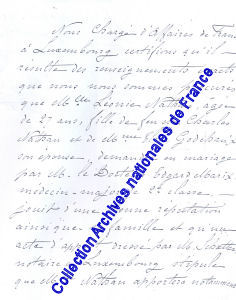 Nous Chargé d'Affaires de France
à Luxembourg certifions qu'il
résulte des renseignements exacts
que nous nous sommes procurés
que Melle Léonie Nathan, âgée
de 27 ans, fille de feu Charles
Nathan et de Mme Godchaux
son épouse, demandée en mariage
par M. le Docteur Edgard
médecin-major de 2e classe
jouit d'une bonne réputation
ainsi que sa famille et qu'un
acte d'apport dressé par
notaire à Luxembourg stipule
que Melle Nathan apportera notamment
Collection Archives nationales de France